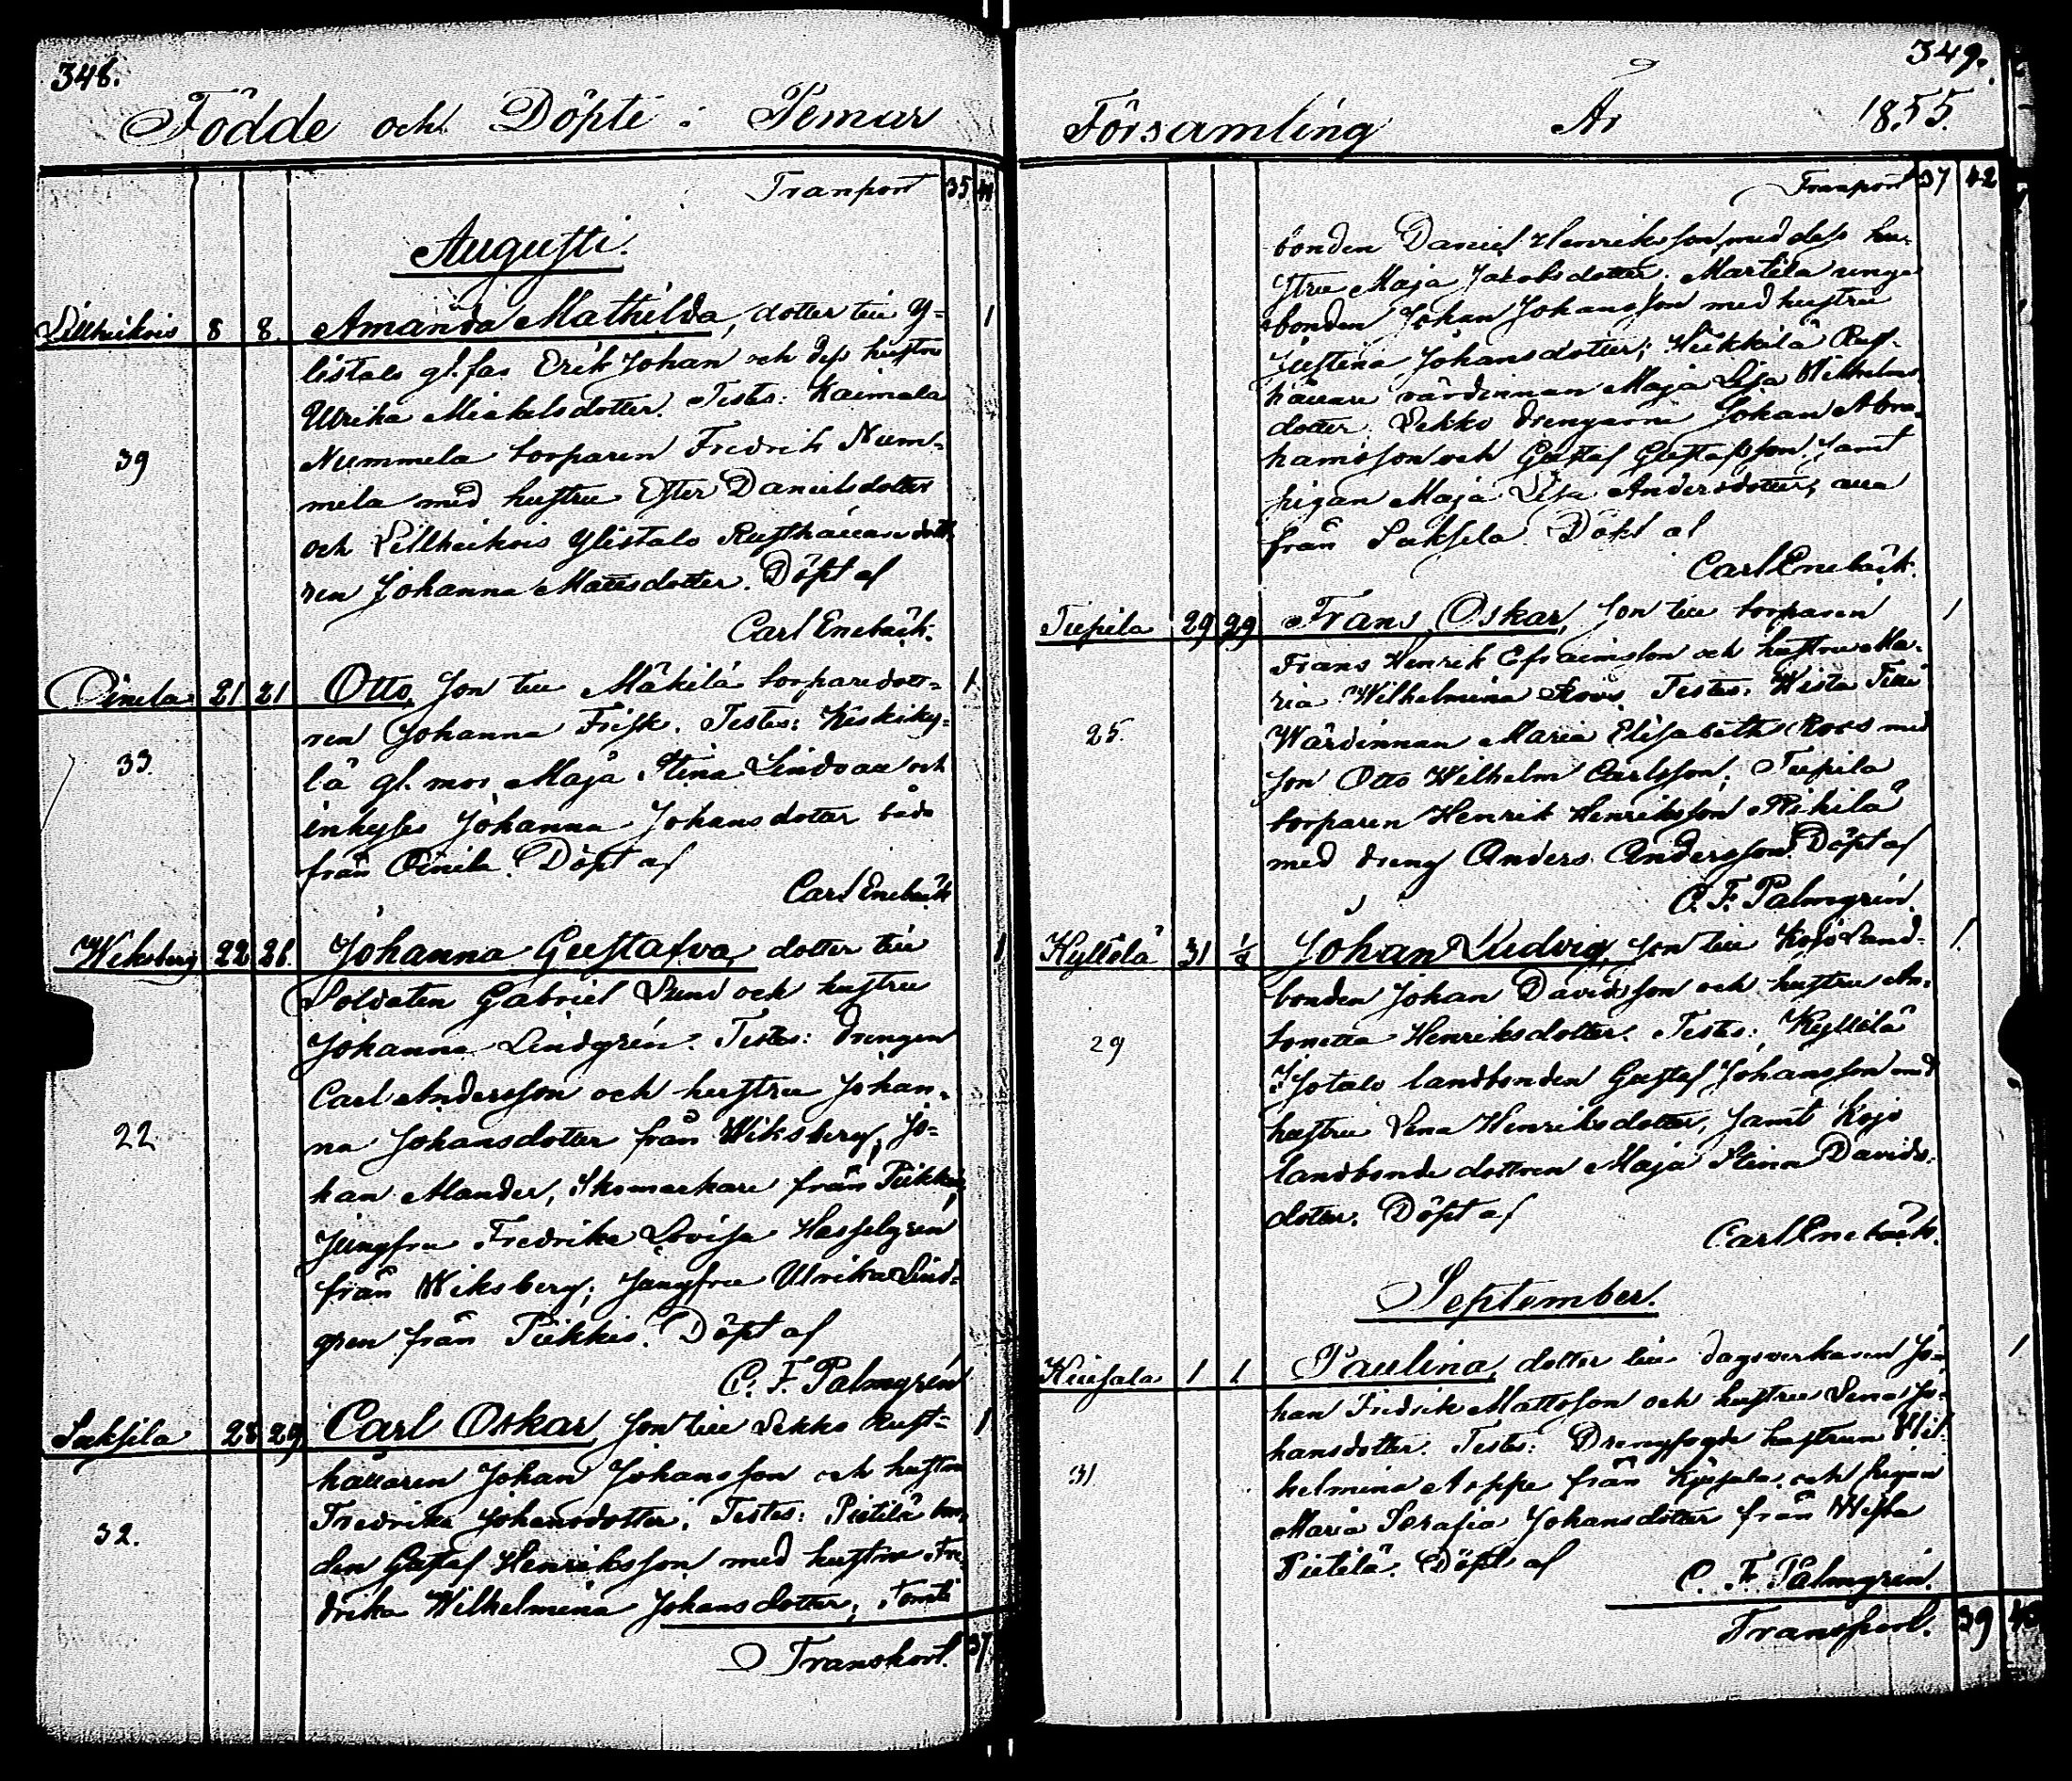 348.
Födde och Döpte i Pemar
Transport 35
Augusti.
Lillheikois 8 8. Amanda Mathilda, dotter till Y=
listalo gl. far Erik Johan och dess hustru
Ulrika Mickelsdotter. Testes: Kaimala
39
Nummela torparen Fredrik Num=
mela med hustru Ester Danielsdotter
och Lillheikois Ylistalo Rusthållare dott
ren Johanna Mattsdotter. Döpt af
Carl Enebäck.
Oinila 21 21 Otto, Son till Mäkilä torparedott= 1
ren Johanna Frisk. Testes: Keskiky=
33.
lä gl. mor Maja Stina Lindvall och
inhyses Johanna Johansdotter båda
från Oinila. Döpt af
Carl Enebäck
Wiksberg 22 26. Johanna Gustafva, dotter till 1
Soldaten Gabriel Lund och hustru
Johanna Lindgrén. Testes: drengen
Carl Andersson och hustru Johan=
22
na Johansdotter från Wiksberg, Jo=
han Mander, Skomarkare från Pikkis,
Jungfru Fredrika Lovisa Hasselgren
från Wiksberg; Jungfru Ulrika Lind=
gren från Pikkis. Döpt af
C. F. Palmgrén
Suksila 28 29 Carl Oskar, Son till Sekko Rust= 1
hållaren Johan Johansson och hustru
Fredrika Johansdotter. Testes: Pietilä bon
32.
den Gustaf Henriksson med hustru Fre=
drika Wilhelmina Johansdotter;
Transport. 37
349.
Församling År 1855.
Transport 37 42
bonden Daniel Henriksson med dess hu=
stru Maja Jakobsdotter. Martila unge
bonden Johan Johansson med hustru
Justina Johansdotter; Heikkilä Rust=
hållare värdinnan Maja Lisa Wilhelms=
dotter. Sekko drengarne Johan Abra=
hamsson och Gustaf Gustafsson, samt
pigan Maja Lisa Andersdotter, alla
från Suksela. Döpt af
Carl Enebäck.
Tiipila 29 29 Frans Oskar, Son till torparen 1
Frans Henrik Efraimsson och hustru Ma=
ria Wilhelmina Roos. Testes: Wista
25.
Wärdinnan Maria Elisabeth Roos med
son Otto Wilhelm Carlsson; Tiipila
torparen Henrik Henriksson
med dreng Anders Andersson. Döpt af
C. F. Palmgrén.
Kyttélä 31 Johan Ludvig, Son till Kojo Land= 1.
bonden Johan Davidsson och hustru An=
tonetta Henriksdotter. Testes: Kyttélä
29
Isotalo landbonden Gustaf Johansson med
hustru Lena Henriksdotter, samt Kojo
landbonde dottren Maja Stina Davids=
dotter. Döpt af
Carl Enebäck.
September.
1 1 Paulina, dotter till dagsverkaren Jo= 1
han Fredrik Mattsson och hustru Lena Jo=
hansdotter. Testes: Drengfogde hustrun Wil=
31.
helmina Aoppe från och pigan
Maria Serafia Johansdotter från Wista
Pietilä. Döpt af
C. F. Palmgrén.
Transport. 39